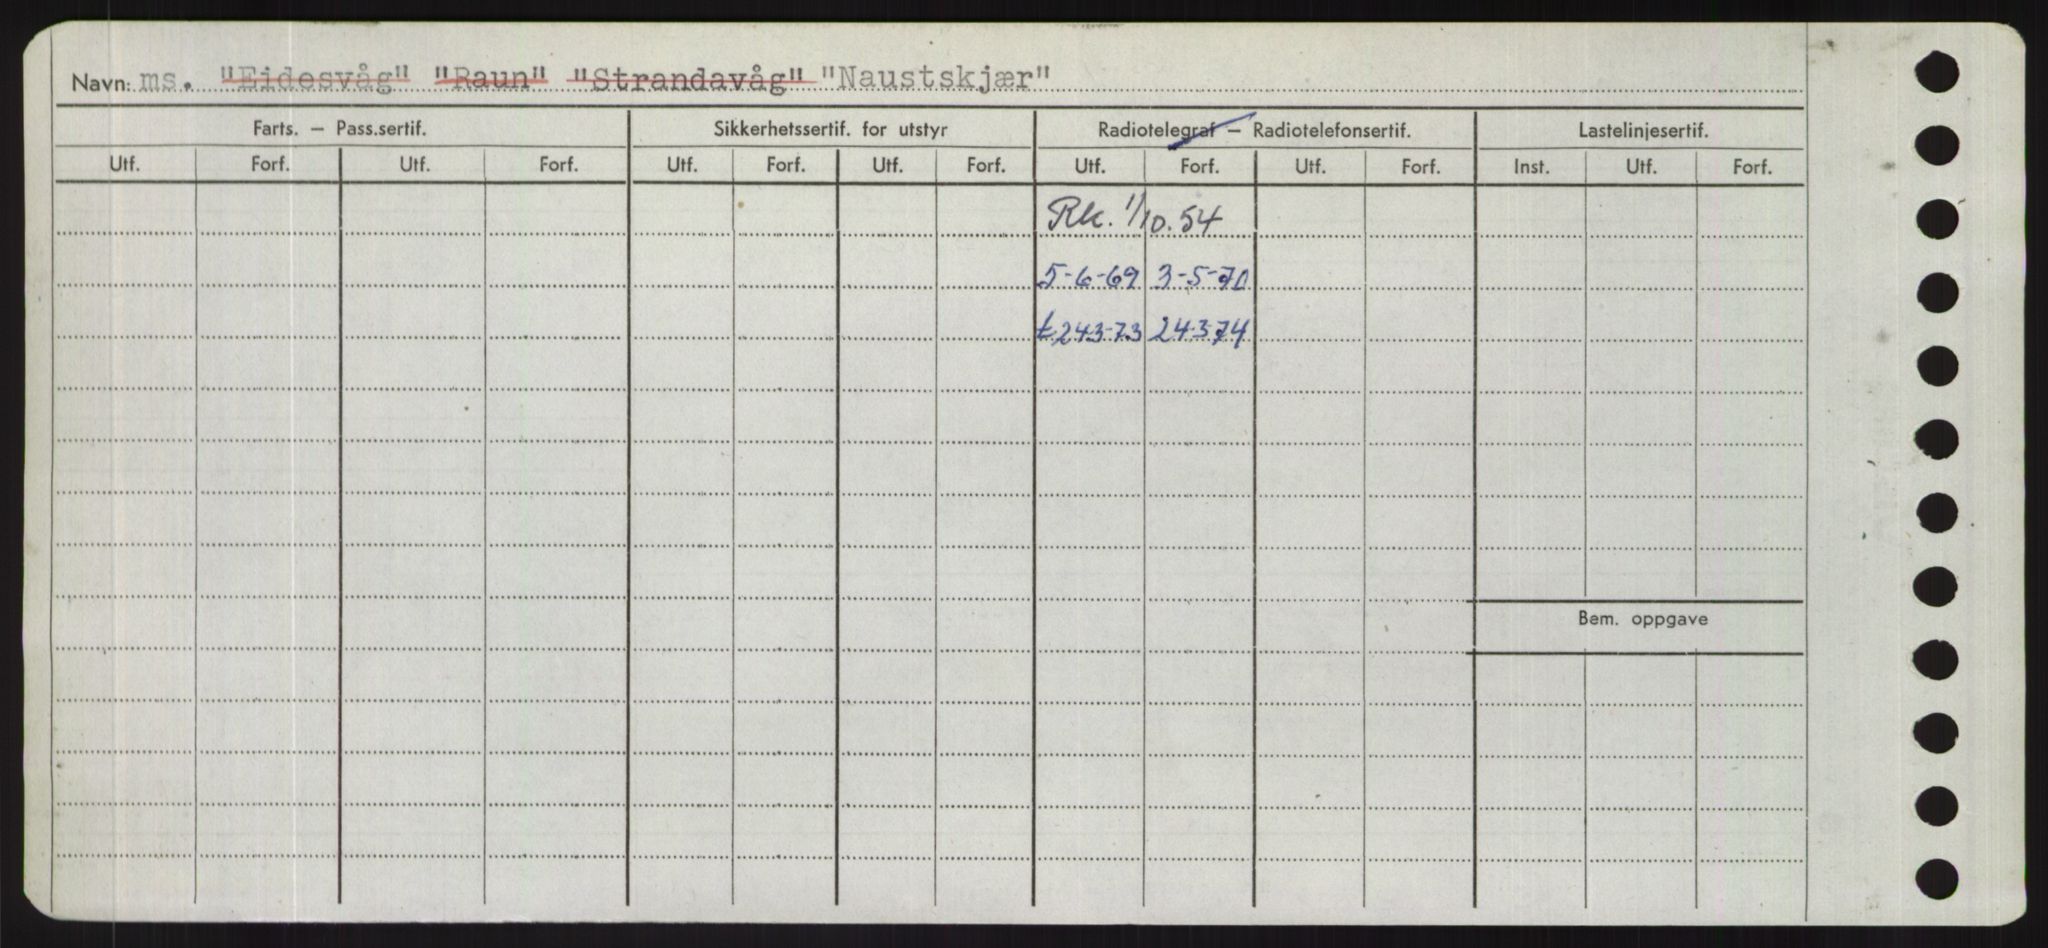 Navn: ms. "Eidesvåg" "Raun" "Strandavåg" "Naustskjær"
Farts. – Pass.sertif. Sikkerhetssertif. for utstyr Radiotelegraf – Radiotelefonsertif. Lastelinjesertif.
Utf. Forf. Utf. Forf. Utf. Forf. Utf. Forf. Utf. Forf. Utf. Forf. Inst. Utf. Forf.
Rk. 1/10.54
5-6-69 3-5-70
t.24.3-73 24.3.74
Bem. oppgave